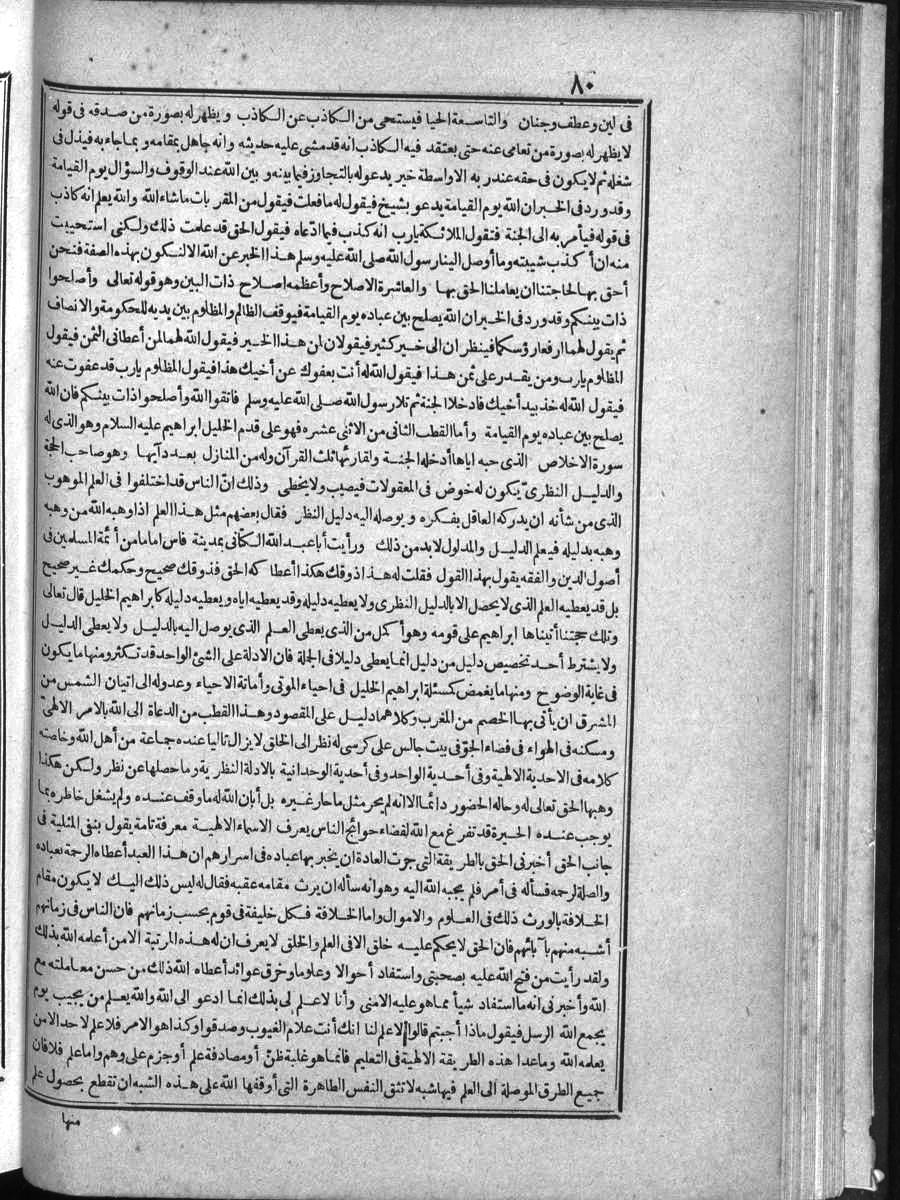 ٨٠
فى لين وعطف وجنان والتاسعة الحيا فيستحى من الكاذب عن الكاذب ويظهر له بصورة من صدقه فى قوله
لا يظهر له بصورة من تعامى عنه حتى يعتقد فيه الكاذب انه قد مشى عليه حديثه وانه جاهل بمقامه وبما جاء به فيذل فى
شغله ثم لا يكون فى حقه عند ربه الا واسطة خير يدعو له بالتجاوز فيما بينه وبين الله عند الوقوف والسؤال يوم القيامة
وقد ورد فى الخبر ان الله يوم القيامة يدعو بشيخ فيقول له ما فعلت فيقول من المقربات ما شاء الله والله يعلم انه كاذب
فى قوله فيأمر به الى الجنة فتقول الملائكة يا رب انه كذب فيما ادّعاه فيقول الحق قد علمت ذلك ولكنى استحييت
منه ان أكذب شيبته وما أوصل الينا رسول الله صلى الله عليه وسلم هذا الخبر عن الله الا لنكون بهذه الصفة فنحن
أحق بها لحاجتنا ان يعاملنا الحق بها والعاشرة الاصلاح وأعظمه اصلاح ذات البين وهو قوله تعالى وأصلحوا
ذات بينكم وقد ورد فى الخبر ان الله يصلح بين عباده يوم القيامة فيوقف الظالم والمظلوم بين يديه للحكومة والانصاف
ثم يقول لهما ارفعا رؤسكما فينظران الى خير كثير فيقولان لمن هذا الخير فيقول الله لهما لمن أعطانى الثمن فيقول
المظلوم يا رب ومن يقدر على ثمن هذا فيقول الله له أنت بعفوك عن أخيك هذا فيقول المظلوم يا رب قد عفوت عنه
فيقول الله له خذ بيد أخيك فادخلا الجنة ثم تلا رسول الله صلى الله عليه وسلم فاتقوا الله وأصلحوا ذات بينكم فان الله
يصلح بين عباده يوم القيامة وأما القطب الثانى من الاثنى عشر ه فهو على قدم الخليل ابراهيم عليه السلام وهو الذى له
سورة الاخلاص الذى حبه اياها أدخله الجنة ولقارئها ثلث القرآن وله من المنازل بعدد آيها وهو صاحب الحجة
والدليل النظرىّ يكون له خوض فى المعقولات فيصيب ولا يخطى وذلك انّ الناس قد اختلفوا فى العلم الموهوب
الذى من شأنه ان يدركه العاقل بفكره ويوصله اليه دليل النظر فقال بعضهم مثل هذا العلم اذا وهبه الله من وهبه
وهبه بدليله فيعلم الدليل والمدلول لابد من ذلك ورأيت أبا عبد الله الكتانى بمدينة فاس اماما من أئمة المسلمين فى
أصول الدين والفقه يقول بهذا القول فقلت له هذا ذوقك هكذا أعطاكه الحق فذوقك صحيح وحكمك غير صحيح
بل قد يعطيه العلم الذى لا يحصل الا بالدليل النظرى ولا يعطيه دليله وقد يعطيه اياه ويعطيه دليله كابراهيم الخليل قال تعالى
وتلك حجتنا أتيناها ابراهيم على قومه وهو أكمل من الذى يعطى العلم الذى يوصل اليه بالدليل ولا يعطى الدليل
ولا يشترط أحد تخصيص دليل من دليل انما يعطى دليلا فى الجملة فان الادلة على الشئ الواحد قد تكثر ومنها ما يكون
فى غاية الوضوح ومنها ما يغمض كمسئلة ابراهيم الخليل فى احياء الموتى وأماتة الاحياء وعدوله الى اتيان الشمس من
المشرق ان يأتى بها الخصم من المغرب وكلاهما دليل على المقصود وهذا القطب من الدعاة الى الله بالامر الالهىّ
ومسكنه فى الهواء فى فضاء الجوّ فى بيت جالس على كرسى له نظر الى الخلق لا يزال تاليا عنده جماعة من أهل الله وخاصته
كلامه فى الاحدية الالهية وفى أحدية الواحد وفى أحدية الوحدانية بالادلة النظرية وما حصلها عن نظر ولكن هكذا
وهبها الحق تعالى له وحاله الحضور دائما الا انه لم يحر مثل ما حار غيره بل أبان الله له ما وقف عنده ولم يشغل خاطره بما
يوجب عنده الحيرة قد تفرغ مع الله لقضاء حوائج الناس يعرف الاسماء الالهية معرفة تامة يقول بنفى المثلية فى
جانب الحق أخبرنى الحق بالطريقة التى جرت العادة ان يخبر بها عباده فى اسرارهم ان هذا العبد أعطاه الرحمة بعباده
والصلة لرحمه فسأله فى أمر فلم يجبه الله اليه وهو انه سأله ان يرث مقامه عقبه فقال له ليس ذلك اليك لا يكون مقام
الخلافة بالورث ذلك فى العلوم والاموال واما الخلافة فكل خليفة فى قوم بحسب زمانهم فان الناس فى زمانهم
أشبه منهم بآبائهم فان الحق لا يحكم عليه خلق الا فى العلم والخلق لا يعرف ان له هذه المرتبة الا من أعلمه الله بذلك
ولقد رأيت من فتح الله عليه بصحبتى واستفاد أحوالا وعلوما وخرق عوائد أعطاه الله ذلك من حسن معاملته مع
الله وأخبرنى انه ما استفاد شيأ مما هو عليه الا منى وأنا لا علم لى بذلك انما ادعو الى الله والله يعلم من يجيب يوم
يجمع الله الرسل فيقول ماذا أجبتم قالوا لا علم لنا انك أنت علام الغيوب وصدقوا وكذا هو الامر فلا علم لاحد الا من
يعلمه الله وما عدا هذه الطريقة الالهية فى التعليم فانما هو غلبة ظنّ أو مصادفة علم أو جزم على وهم واما علم فلا فان
جميع الطرق الموصلة الى العلم فيها شبه لا تثق النفس الطاهرة التى أوقفها الله على هذه الشبه ان تقطع بحصول علم
منها